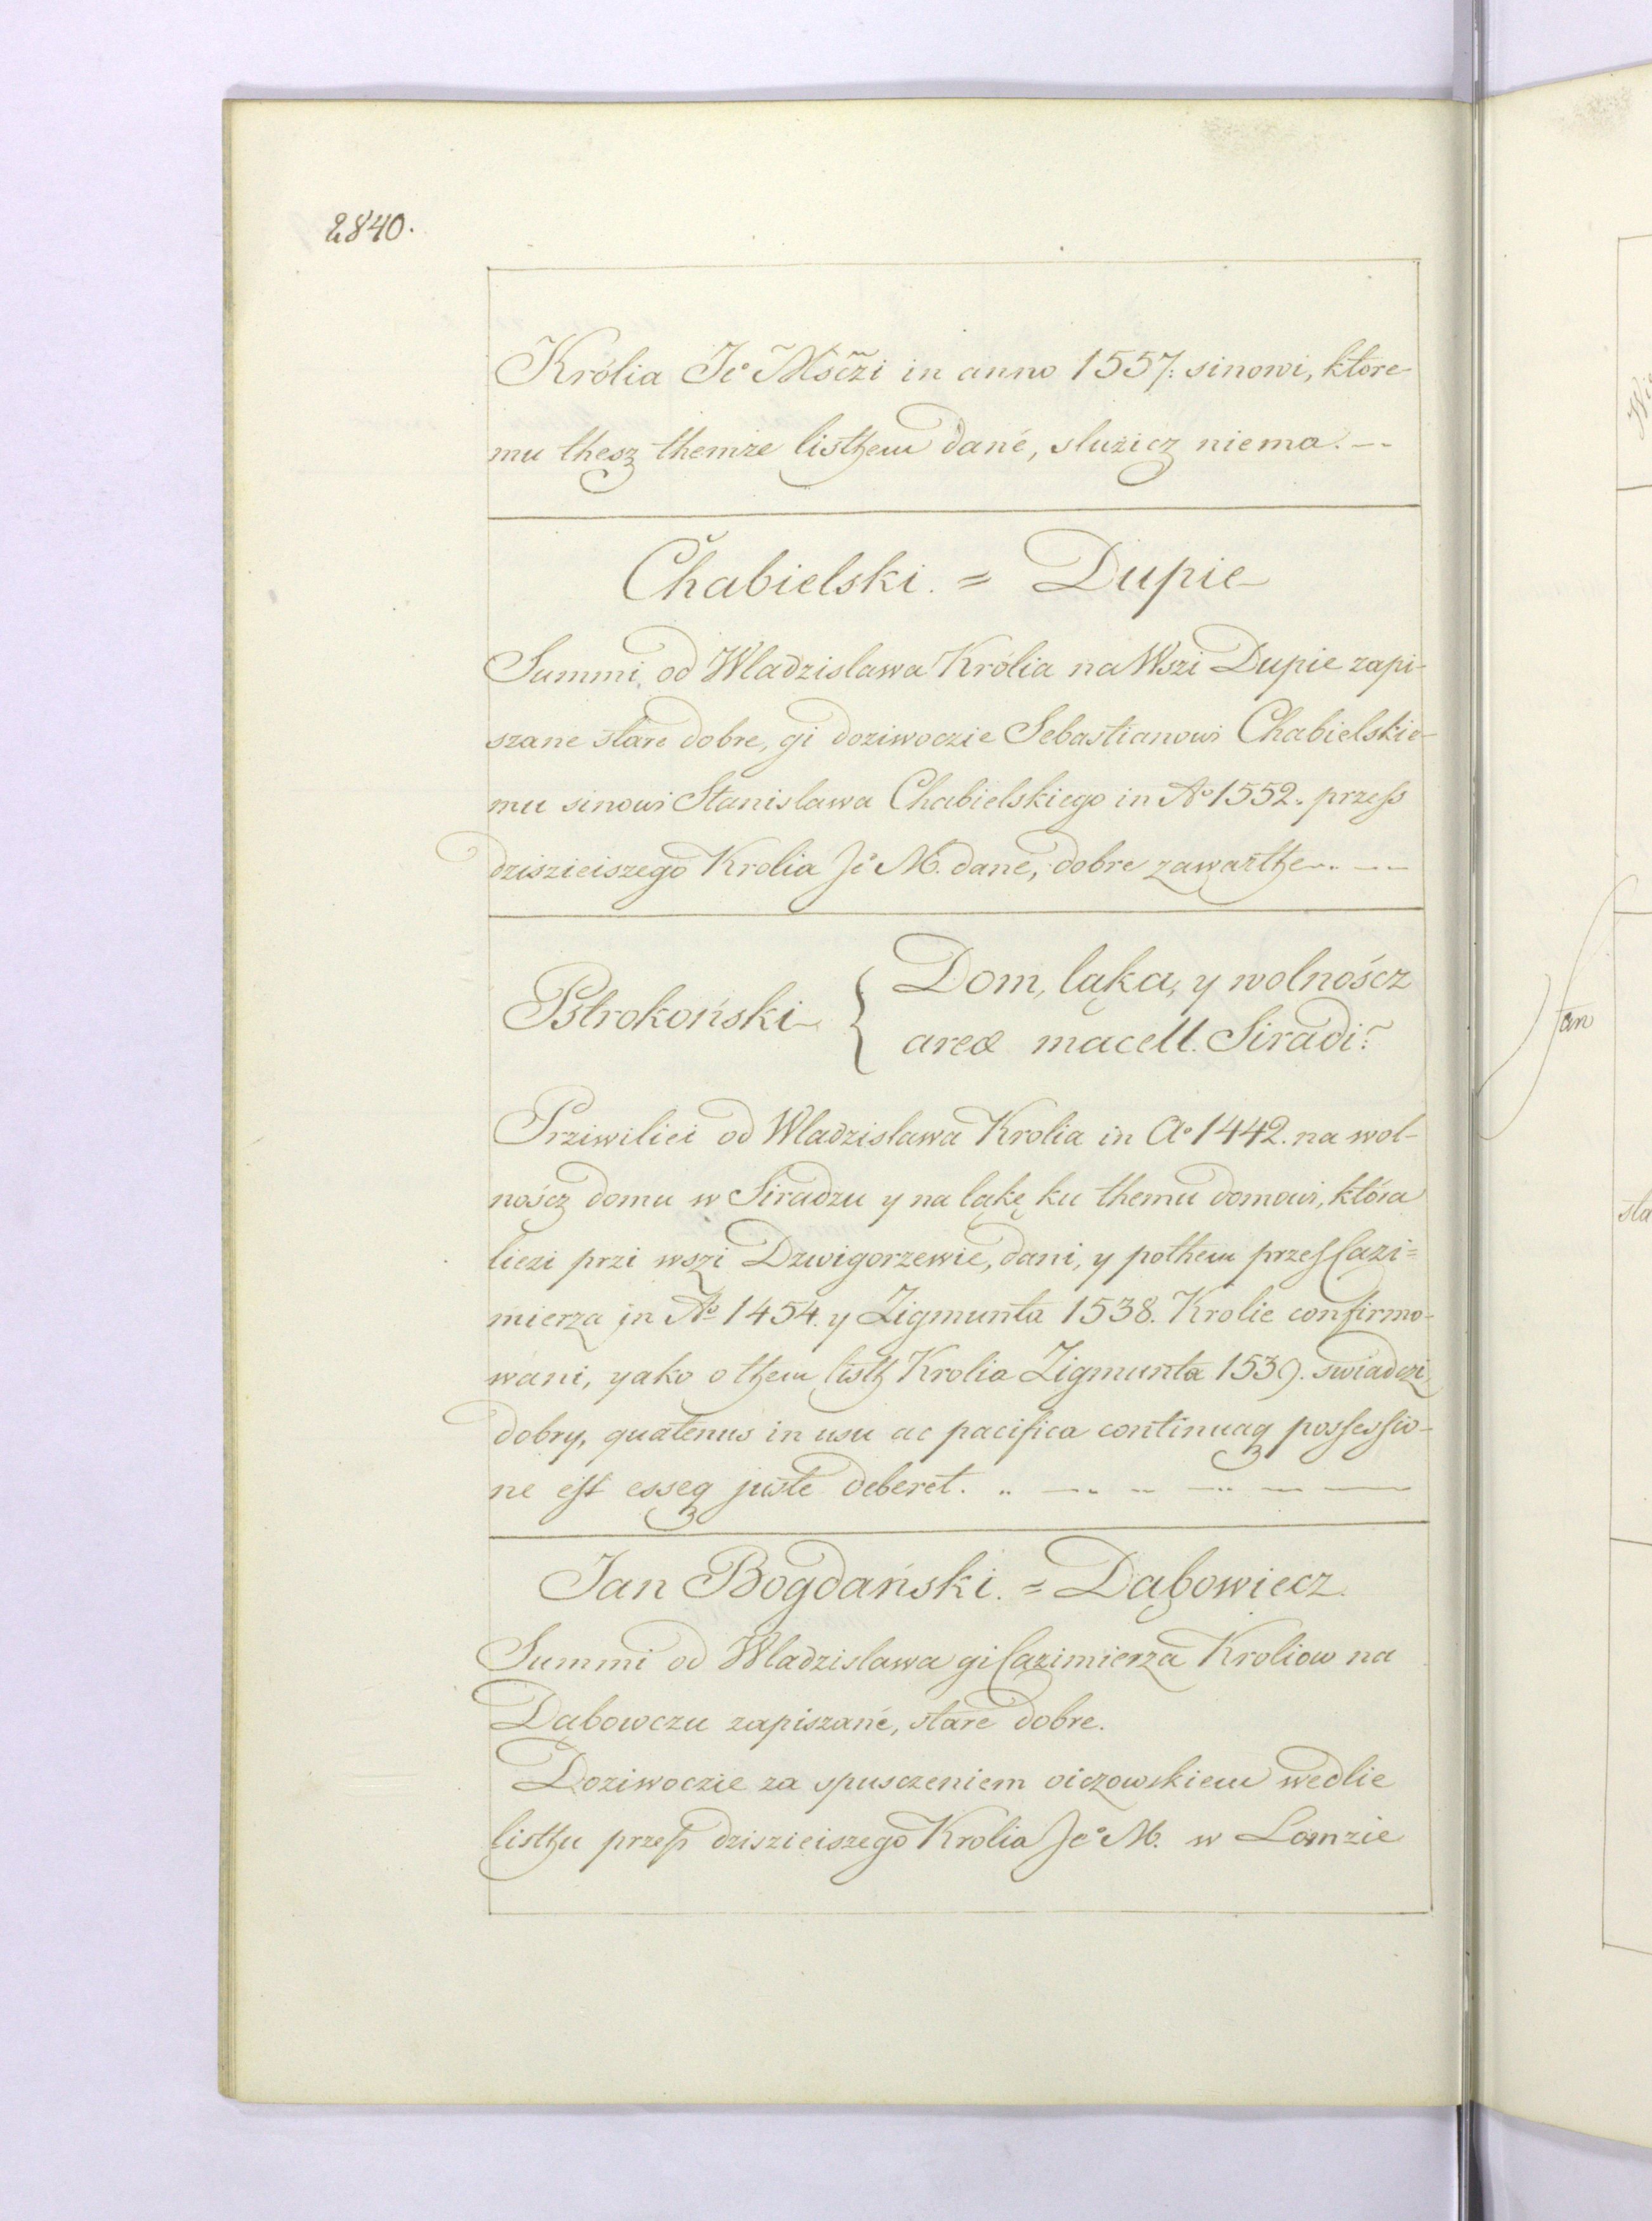 2840.
Królia Je° Mśczi in anno 1557. sinowi, ktore
mu thesz themże listhem dané, slużicz niema.--
Chabielski. = Dupie
Summi od Wladzislawa Królia na Wszi Dupie zapi-
szane stare dobre, gi doziwoczie Sebastianowi Chabielskie-
mu sinowi Stanislawa Chabielskiego in A° 1552. przess
dziszieiszego Krolia Je° M. dané, dobre zawarthe.. --
Pstrokoński { Dom, ląka, y wolnoścz
areæ macell. Siradi:
Prziwiliei od Wladzislawa Krolia in A° 1442. na wol-
noścz domu w Siradzu y na ląkę ku themu domowi, która
liezi przi wszi Dzwigorzewie, dani, y pothem przes Cazi=
mierza in A° 1454. y Zigmunta 1538. Krolie confirmo-
wani, yako o them listh Krolia Zigmunta 1539. swiadczi,
dobry, quatenus in usu ac pacifica continuaq possessio-
ne est esseq juste deberet. .. -- -- -- -- --
Jan Bogdański. = Dąbowiecz.
Summi od Wladzislawa gi Cazimierza Kroliow na
Dąbowczu zapiszané, stare dobre.
Doziwoczie za spusczeniem oiczowskiem wedlie
listhu przess dziszieiszego Krolia Je° M. w Lomzie
Jan